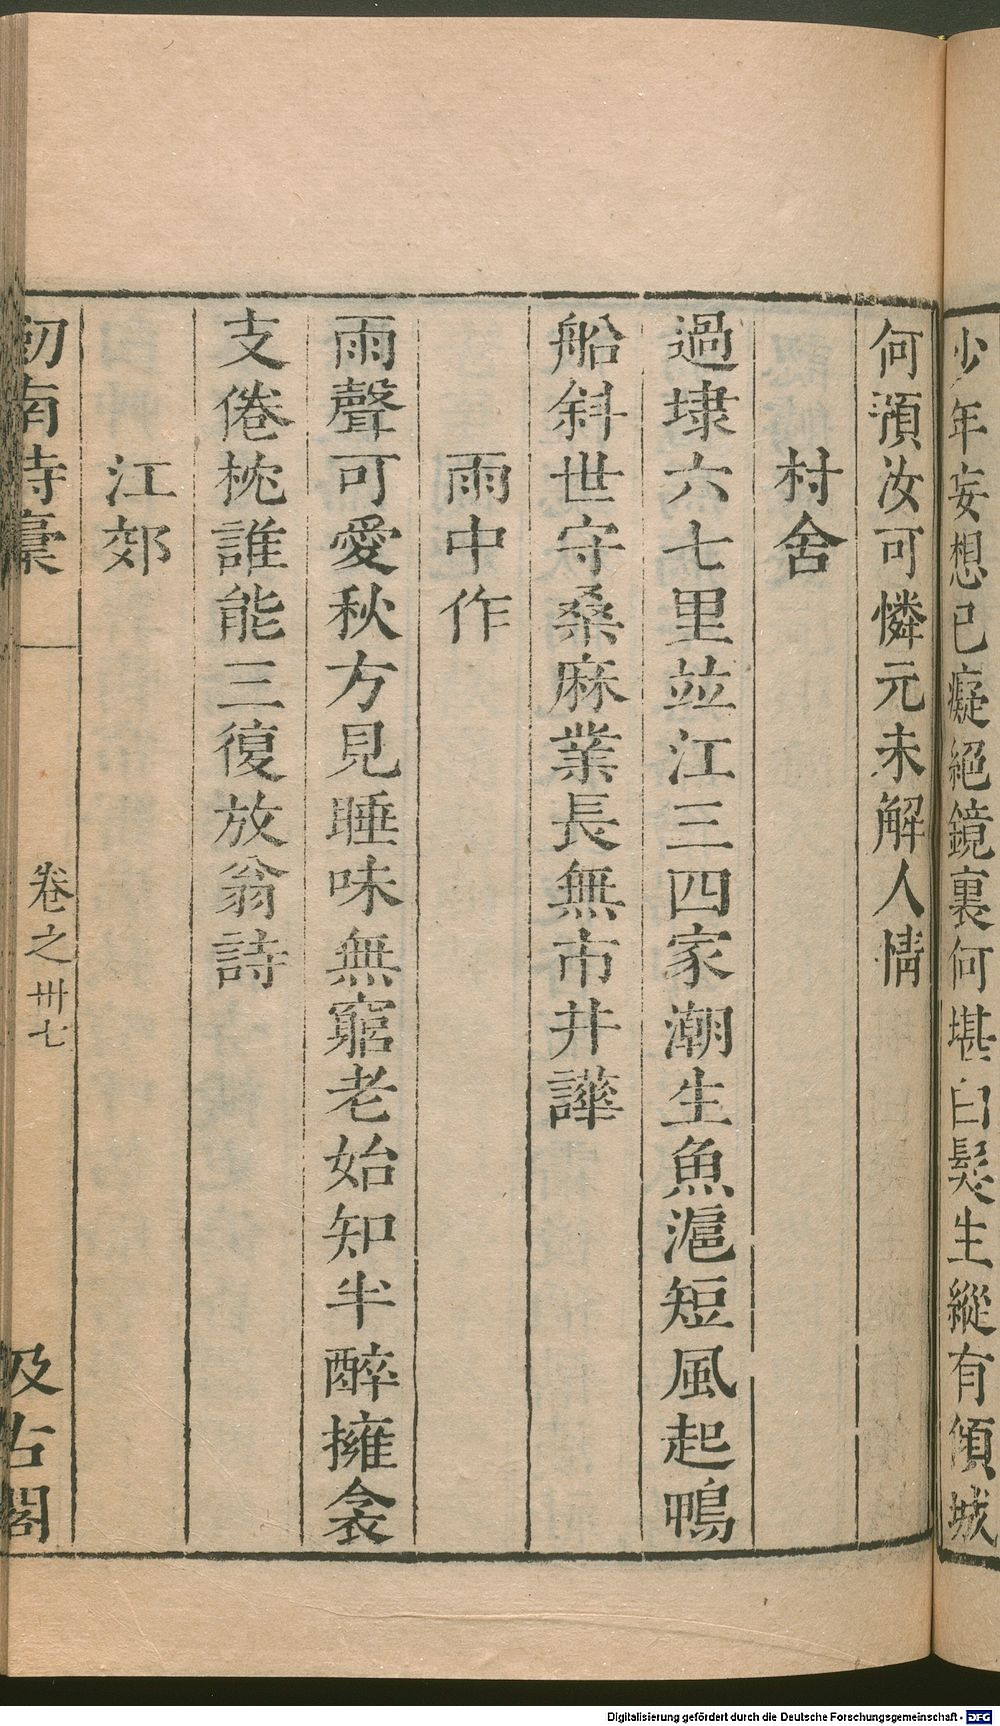 少年妄想已癡絕鏡裏何堪白髮生縱有傾城
何預汝可憐元未解人情
村舍
過埭六七里並江三四家潮生魚滬短風起鴨
船斜世守桑麻業長無市井譁
雨中作
雨聲可愛秋方見睡味無窮老始知半醉擁衾
支倦枕誰能三復放翁詩
江郊
劒南詩稾
卷之卅七
汲古閣
Digitalisierung gefördert durch die Deutsche Forschungsgemeinschaft - DFG